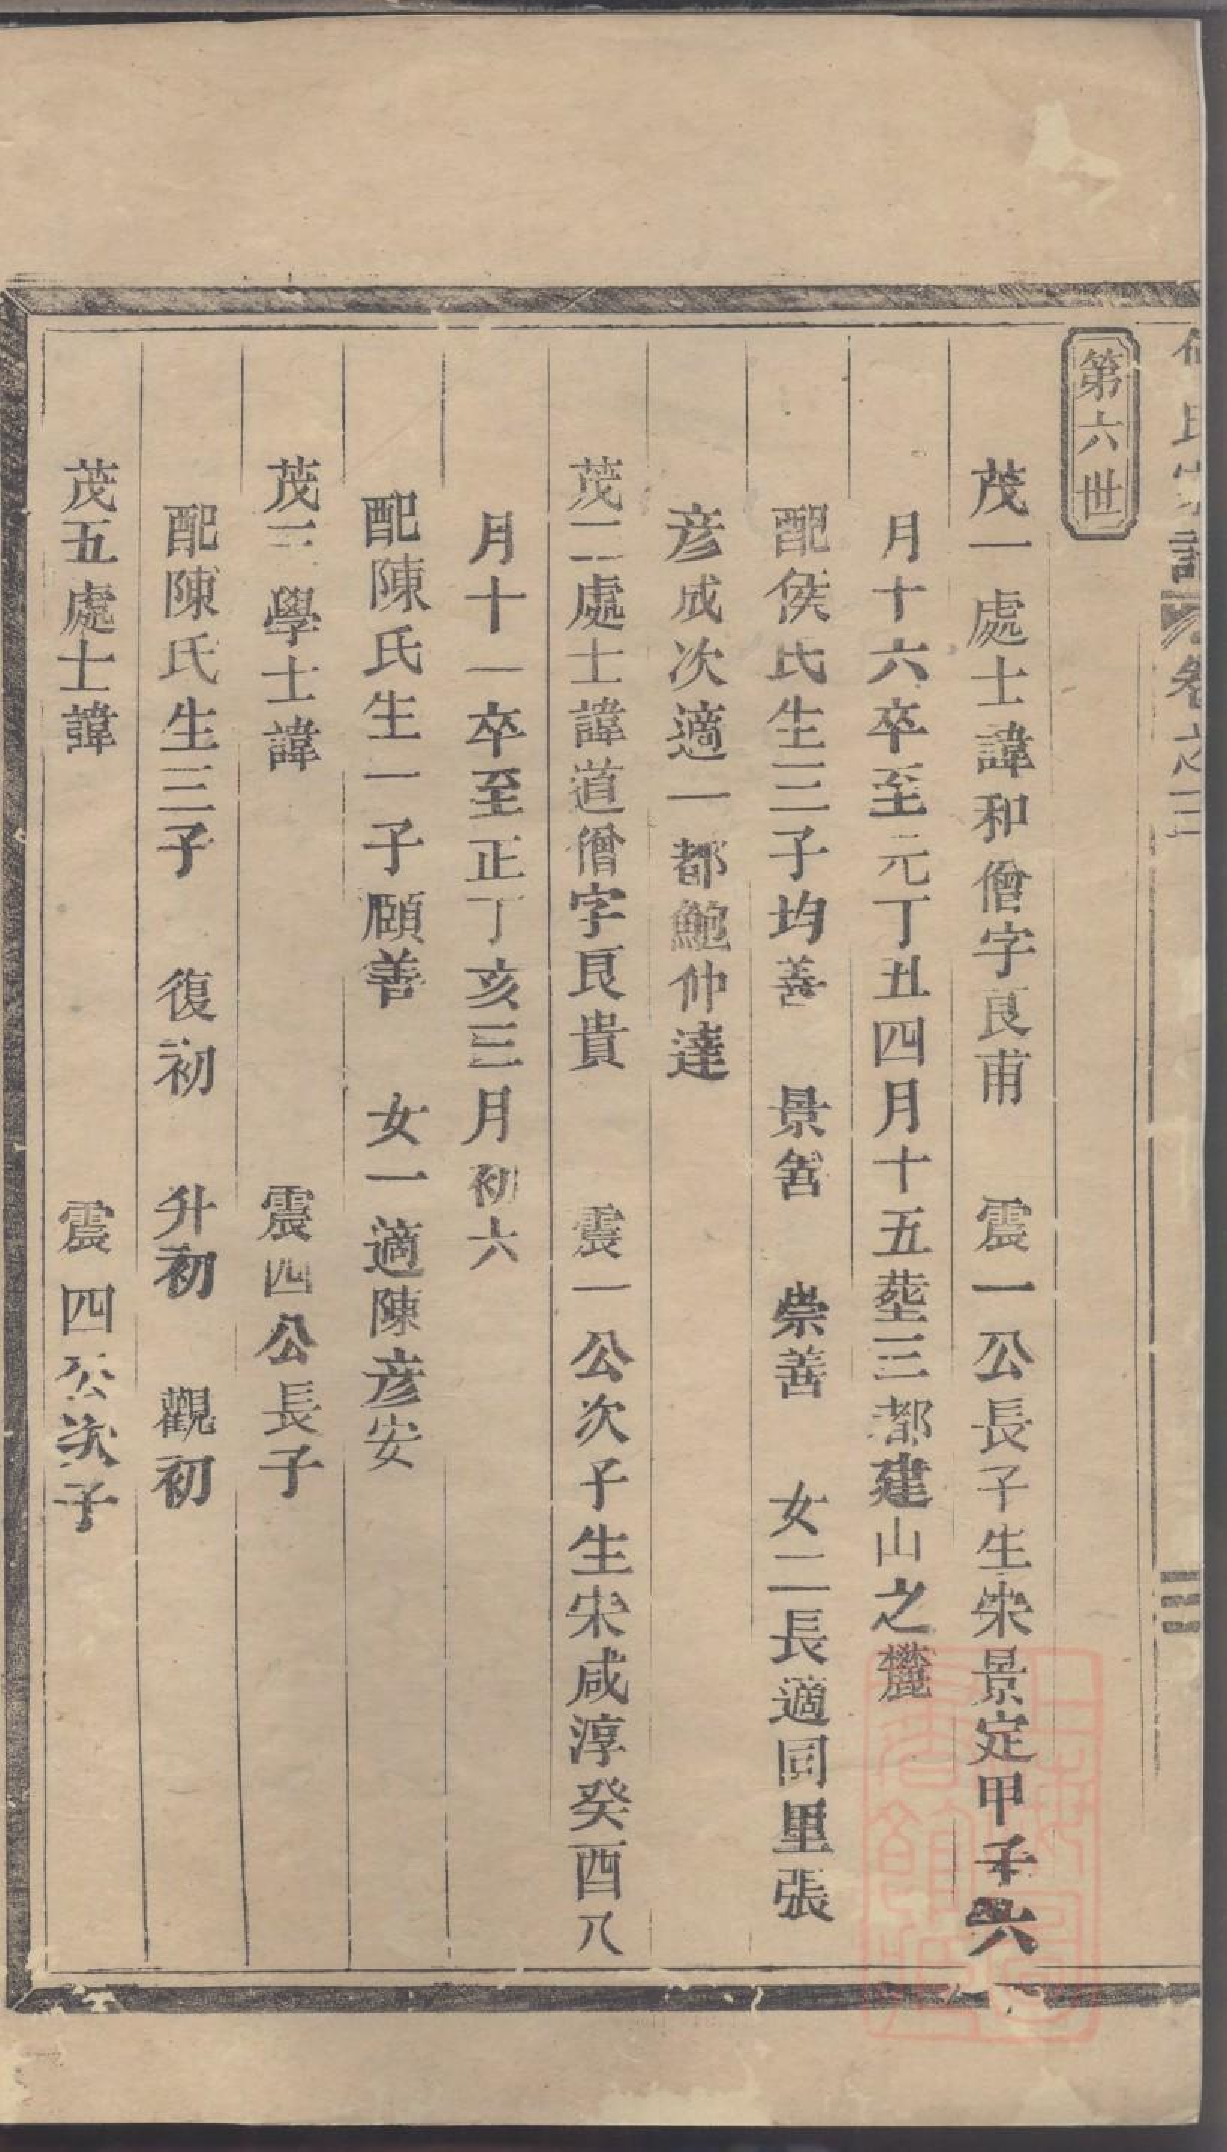 氏宗譜 卷之三
第六世
茂一處士諱和僧字良甫 震一公長子生宋景定甲子六
月十六卒至元丁丑四月十五塟三都建山之麓
配侯氏生三子均善 景善 崇善 女二長適同里張
彦成次適一都鮑仲達
茂二處士諱道僧字良貴 震一公次子生宋咸淳癸酉八
月十一卒至正丁亥三月初六
配陳氏生一子願善 女一適陳彦安
茂三學士諱 震四公長子
配陳氏生三子 復初 升初 觀初
茂五處士諱 震四公次子